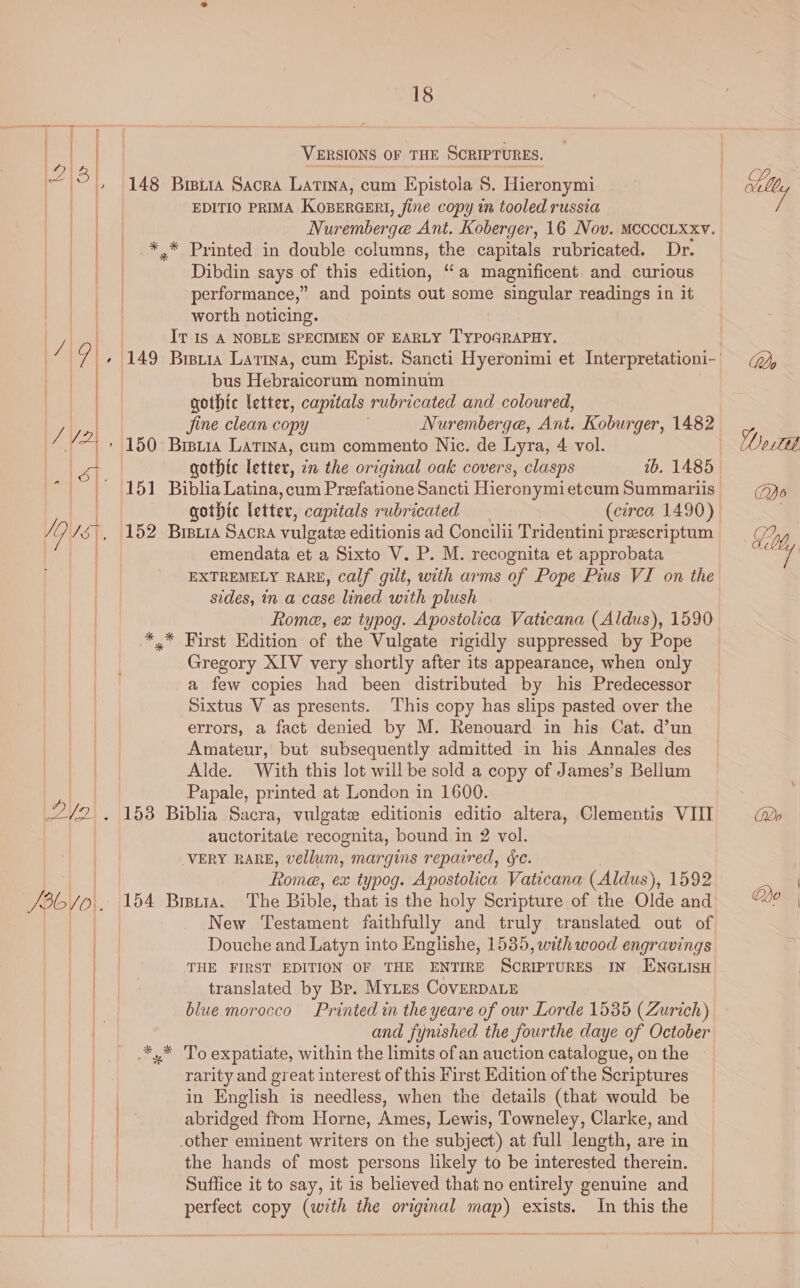 18
VERSIONS OF THE SCRIPTURES.
2 3, 148 BIBLIA SACRA LATINA, cum Epistola S. Hieronymi Lilly
EDITIO PRIMA KOBERGERI, fine copy in tooled russia
Nuremberge Ant. Koberger, 16 Nov. MCCCCLXXV.
*** Printed in double columns, the capitals rubricated. Dr.
Dibdin says of this edition, “a magnificent and curious
performance,” and points out some singular readings in it
worth noticing.
IT IS A NOBLE SPECIMEN OF EARLY TYPOGRAPHY.
1 9, 149 BIBLIA LATINA, cum Epist. Sancti Hyeronimi et Interpretationi- Do
bus Hebraicorum nominum
gothic letter, capitals rubricated and coloured,
fine clean copy Nurembergæ, Ant. Koburger, 1482
1 12, 150 BIBLIA LATINA, cum commento Nic. de Lyra, 4 vol.
gothic letter, in the original oak covers, clasps ib. 1485
151 Biblia Latina, cum Præfatione Sancti Hieronymi et cum Summariis Do
gothic letter, capitals rubricated (circa 1490)
19 15, 152 BIBLIA SACRA vulgatæ editionis ad Concilii Tridentini præscriptum Lilly
emendata et a Sixto V. P. M. recognita et approbata
EXTREMELY RARE, calf gilt, with arms of Pope Pius VI on the
sides, in a case lined with plush
Romæ, ex typog. Apostolica Vaticana (Aldus), 1590
*** First Edition of the Vulgate rigidly suppressed by Pope
Gregory XIV very shortly after its appearance, when only
a few copies had been distributed by his Predecessor
Sixtus V as presents. This copy has slips pasted over the
errors, a fact denied by M. Renouard in his Cat. d’un
Amateur, but subsequently admitted in his Annales des
Alde. With this lot will be sold a copy of James’s Bellum
Papale, printed at London in 1600.
2 12. 153 Biblia Sacra, vulgatæ editionis editio altera, Clementis VIII Do
auctoritate recognita, bound in 2 vol.
VERY RARE, vellum, margins repaired, &c.
Romæ, ex typog. Apostolica Vaticana (Aldus), 1592
36 10. 154 BIBLIA. The Bible, that is the holy Scripture of the Olde and Do
New Testament faithfully and truly translated out of
Douche and Latyn into Englishe, 1535, with wood engravings
THE FIRST EDITION OF THE ENTIRE SCRIPTURES IN ENGLISH
translated by BP. MYLES COVERDALE
blue morocco Printed in the yeare of our Lorde 1535 (Zurich)
and fynished the fourthe daye of October
*** To expatiate, within the limits of an auction catalogue, on the
rarity and great interest of this First Edition of the Scriptures
in English is needless, when the details (that would be
abridged from Horne, Ames, Lewis, Towneley, Clarke, and
other eminent writers on the subject) at full length, are in
the hands of most persons likely to be interested therein.
Suffice it to say, it is believed that no entirely genuine and
perfect copy (with the original map) exists. In this the